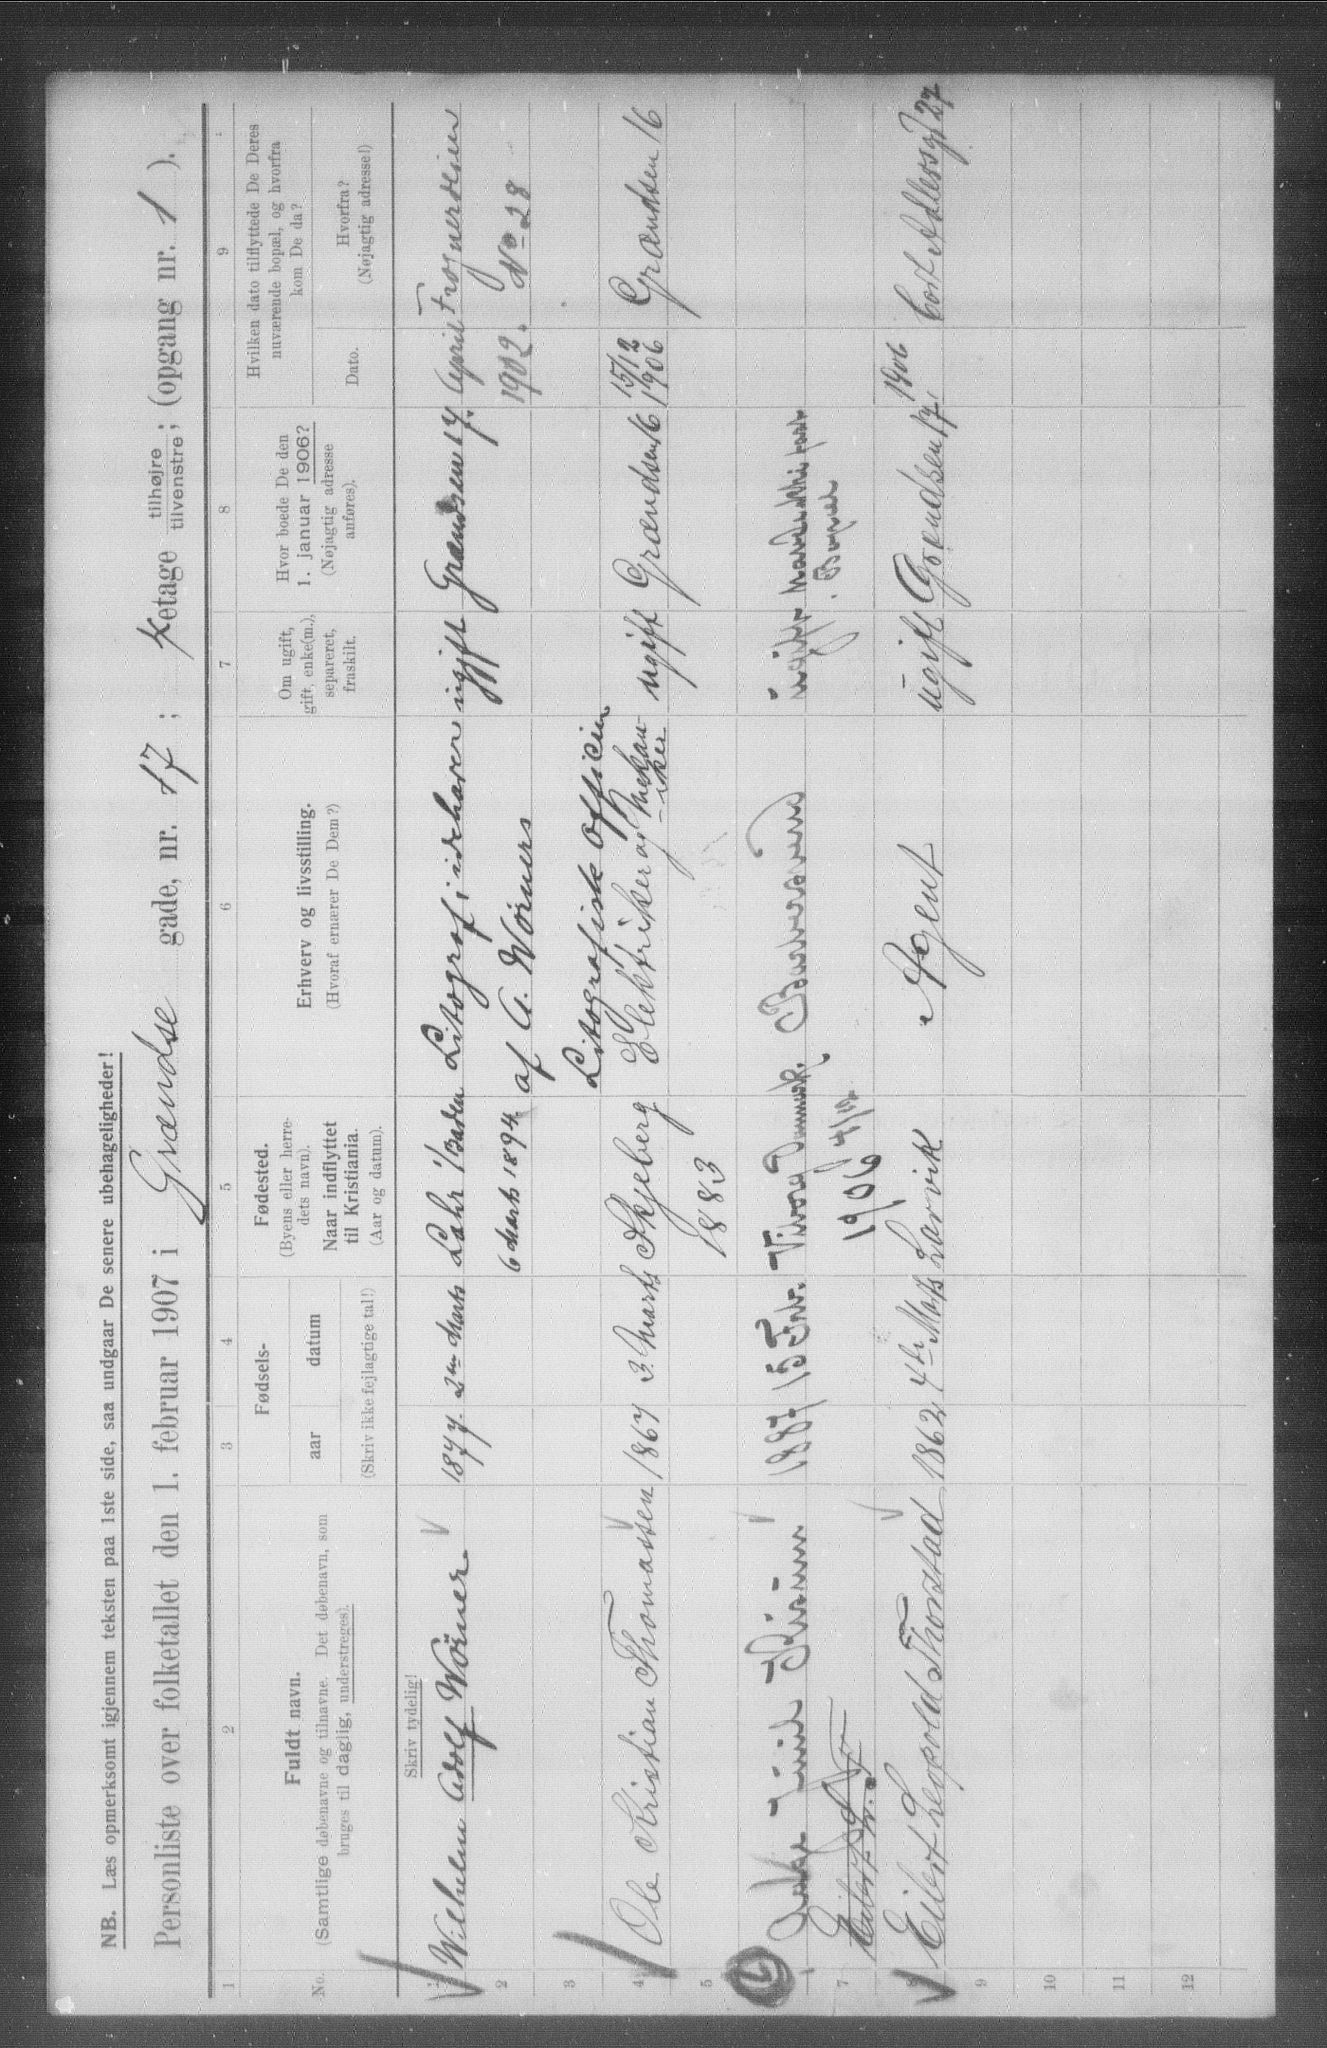 NB. Læs opmerksomt igjennem teksten paa 1ste side, saa undgaar De senere ubehageligheder!
Personliste over folketallet den 1. februar 1907 i Grændse gade, nr. 17; etage tilhøjre tilvenstre; (opgang nr. 1).
1 2 3 4 5 6 7 8 9
No.
Fuldt navn.
(Samtlige døbenavne og tilnavne. Det døbenavn, som
bruges til daglig, understreges).
Fødsels-
aar datum
(Skriv ikke fejlagtige tal!)
Fødested.
(Byens eller herre-
dets navn).
Naar indflyttet
til Kristiania.
(Aar og datum).
Erhverv og livsstilling.
(Hvoraf ernærer De Dem?)
Om ugift,
gift, enke(m.),
separeret,
fraskilt.
Hvor boede De den
1. januar 1906?
(Nøjagtig adresse
anføres).
Hvilken dato tilflyttede De Deres
nuværende bopæl, og hvorfra
kom De da?
Dato.
Hvorfra?
(Nøjagtig adresse!)
Skriv tydelig!
1 Wilhelm Adolf Wörner 1877 2 Marts Lahr i/Baden Litograf, indehaver ugift Grændsen 17 April Frognerveien
2 6 Marts 1894 af A. Wörners 1902. No 28
3 Litografisk Officin
4 Ole Kristian Thomassen 1867 3. Marts Skjeberg Elektriker og Mekan- ugift Grændsen 16 15/12 Grændsen 16
iker 1906
5 1883
6 1887 15 Febr. Viborg Danmark. ugift
7 Eilert 1906
8 Eilert Leopold Thorstad 1862 4de Marts Larvik Agent ugift Grændsen 17 1906
9
10
11
12